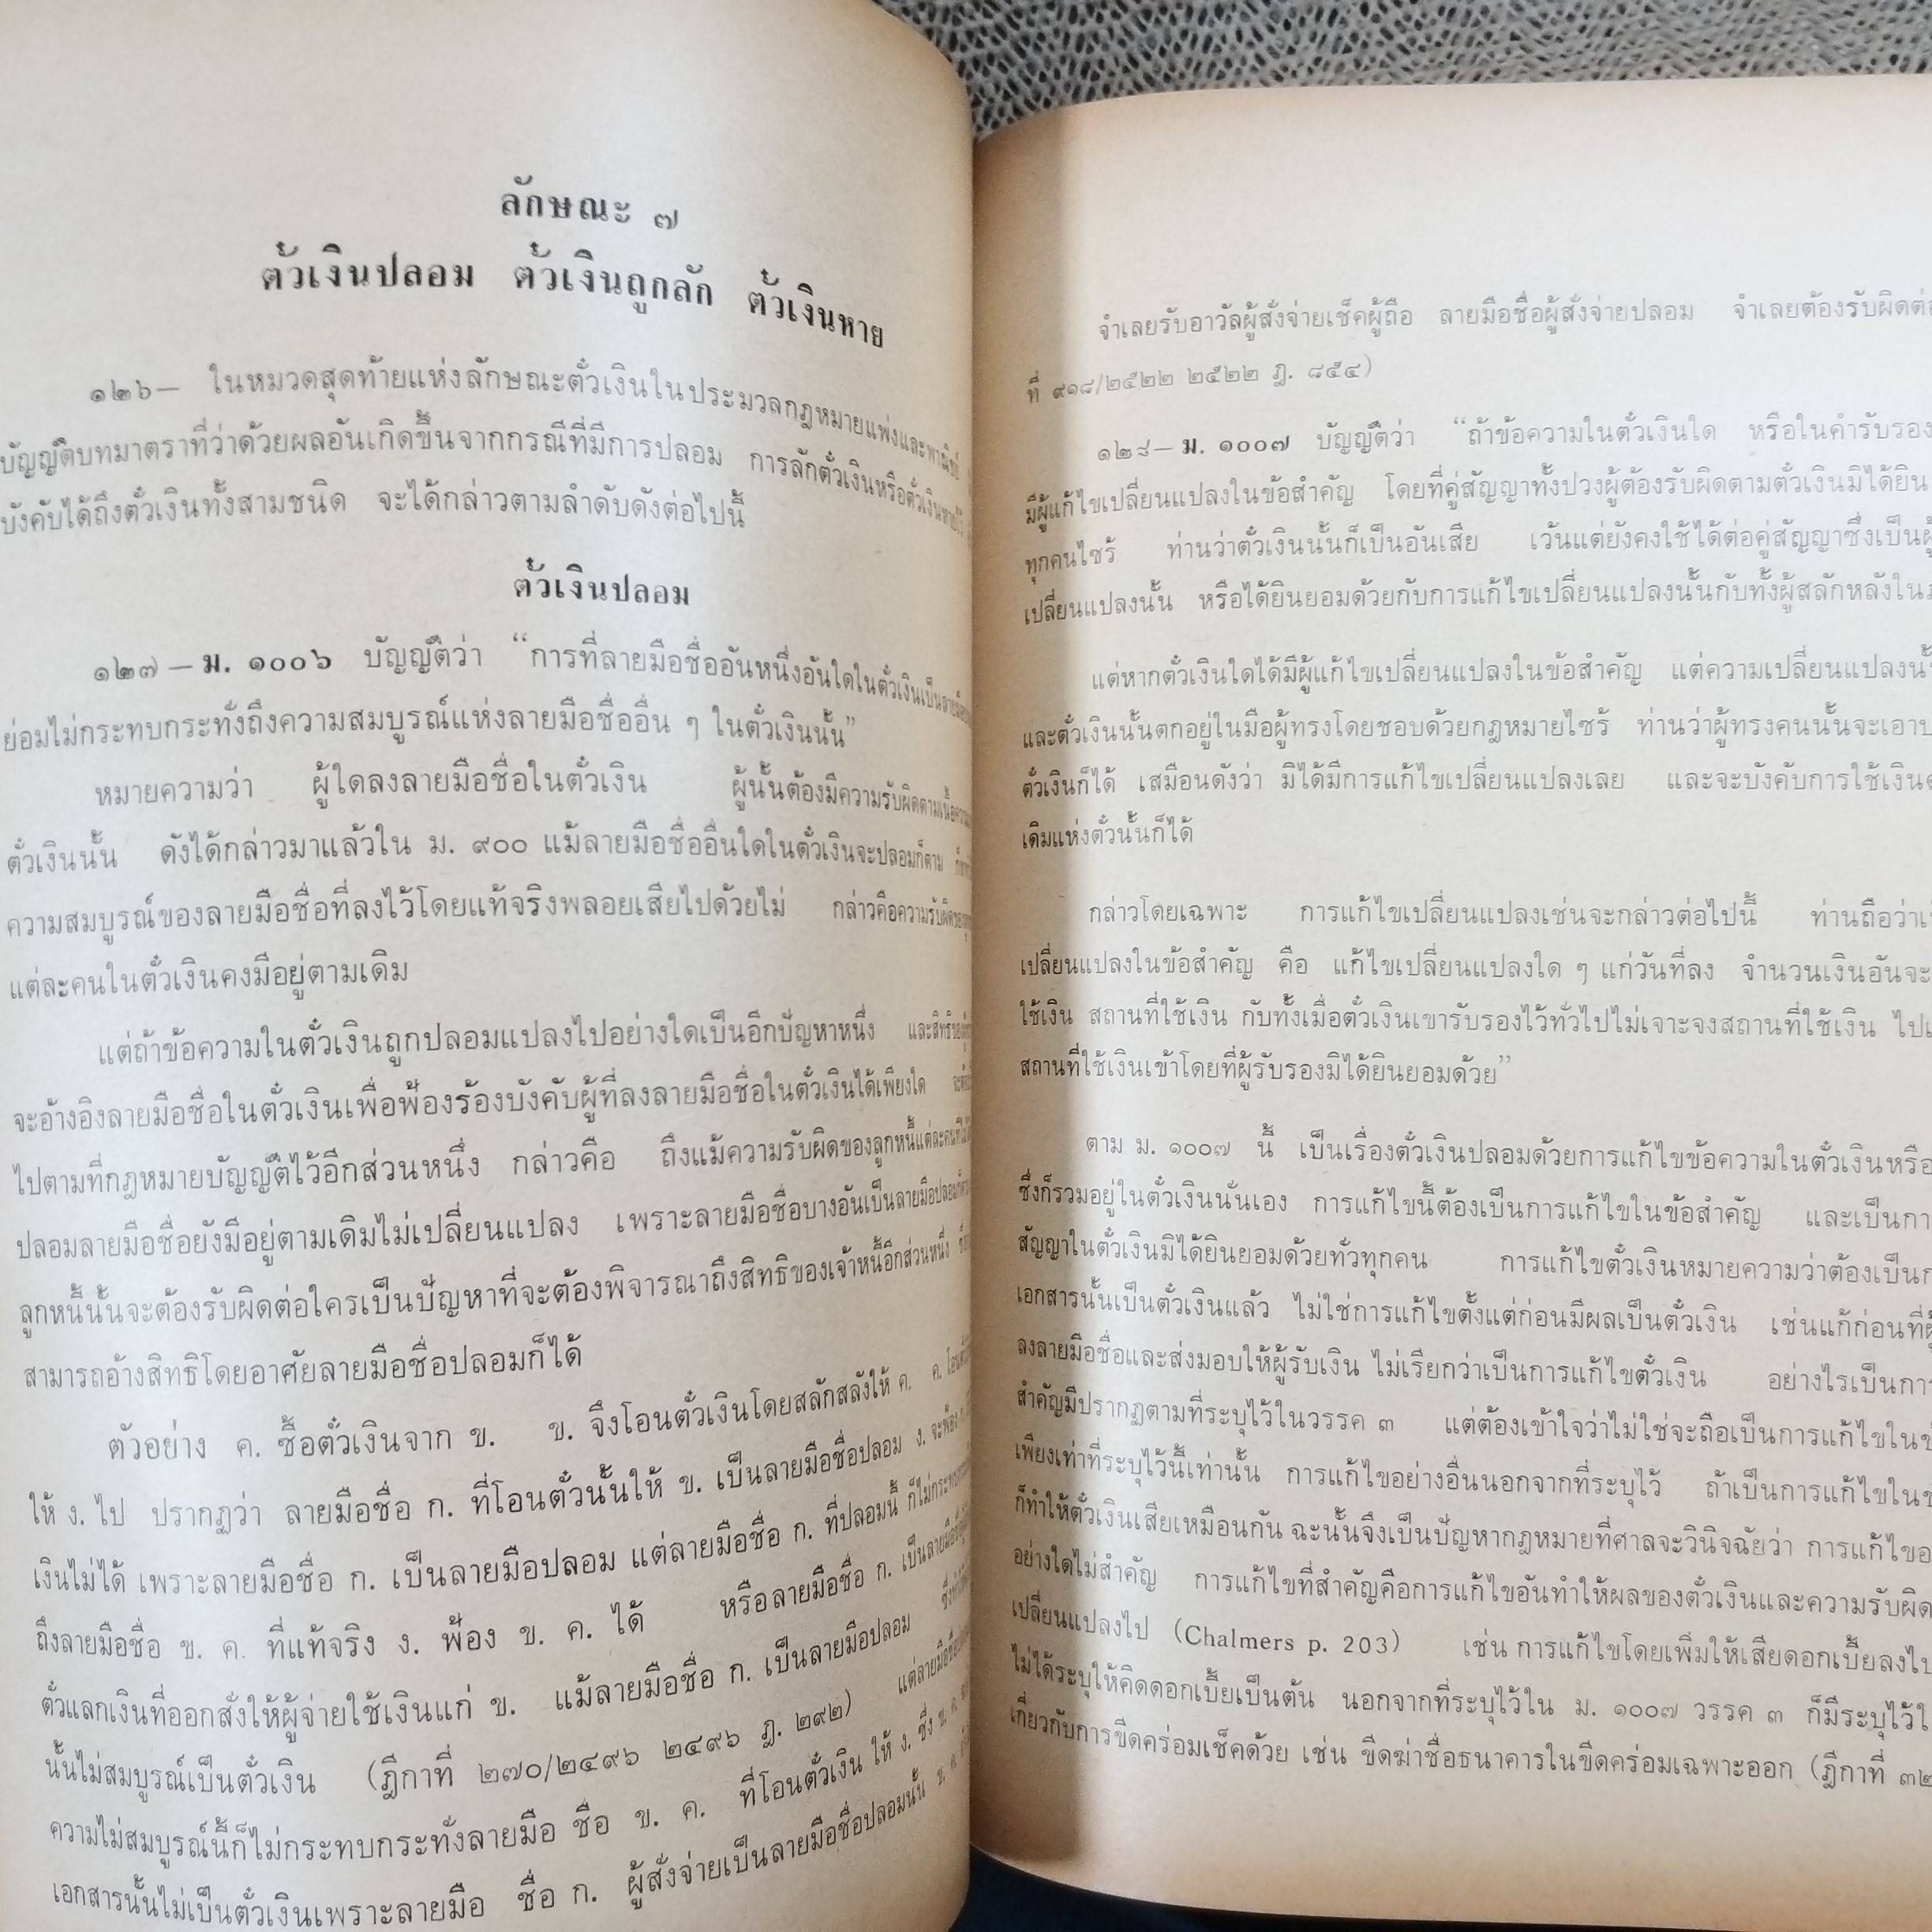 ลักษณะ ๗
ตั๋วเงินปลอม ตั๋วเงินถูกลัก ตั๋วเงินหาย
๑๒๖— ในหมวดสุดท้ายแห่งลักษณะตั๋วเงินในประมวลกฎหมายแพ่งและพาณิชย์
บัญญัติบทมาตราที่ว่าด้วยผลอันเกิดขึ้นจากกรณีที่มีการปลอม การลักตั๋วเงินหรือตั๋วเงินหาย
บังคับได้ถึงตั๋วเงินทั้งสามชนิด จะได้กล่าวตามลำดับดังต่อไปนี้
ตั๋วเงินปลอม
๑๒๗—ม. ๑๐๐๖ บัญญัติว่า “การที่ลายมือชื่ออันหนึ่งอันใดในตั๋วเงินเป็น
ย่อมไม่กระทบกระทั่งถึงความสมบูรณ์แห่งลายมือชื่ออื่น ๆ ในตั๋วเงินนั้น”
หมายความว่า ผู้ใดลงลายมือชื่อในตั๋วเงิน ผู้นั้นต้องมีความรับผิดตามเนื้อความ
ตั๋วเงินนั้น ดังได้กล่าวมาแล้วใน ม. ๙๐๐ แม้ลายมือชื่ออื่นใดในตั๋วเงินจะปลอมก็ตาม
ความสมบูรณ์ของลายมือชื่อที่ลงไว้โดยแท้จริงพลอยเสียไปด้วยไม่ กล่าวคือความรับผิด
แต่ละคนในตั๋วเงินคงมีอยู่ตามเดิม
แต่ถ้าข้อความในตั๋วเงินถูกปลอมแปลงไปอย่างใดเป็นอีกปัญหาหนึ่ง
จะอ้างอิงลายมือชื่อในตั๋วเงินเพื่อฟ้องร้องบังคับผู้ที่ลงลายมือชื่อในตั๋วเงินได้เพียงใด
ไปตามที่กฎหมายบัญญัติไว้อีกส่วนหนึ่ง กล่าวคือ ถึงแม้ความรับผิดของลูกหนี้แต่ละคน
ปลอมลายมือชื่อยังมีอยู่ตามเดิมไม่เปลี่ยนแปลง เพราะลายมือชื่อบางอันเป็นลายมือปลอม
ลูกหนี้นั้นจะต้องรับผิดต่อใครเป็นปัญหาที่จะต้องพิจารณาถึงสิทธิของเจ้าหนี้อีกส่วนหนึ่ง
สามารถอ้างสิทธิโดยอาศัยลายมือชื่อปลอมก็ได้
ตัวอย่าง ค. ซื้อตั๋วเงินจาก ข. ข. จึงโอนตั๋วเงินโดยสลักสลังให้ ค. ค.
ให้ ง. ไป ปรากฏว่า ลายมือชื่อ ก. ที่โอนตั๋วนั้นให้ ข. เป็นลายมือชื่อปลอม ง. จะฟ้อง
เงินไม่ได้ เพราะลายมือชื่อ ก. เป็นลายมือปลอม แต่ลายมือชื่อ ก. ที่ปลอมนี้
ถึงลายมือชื่อ ข. ค. ที่แท้จริง ง. ฟ้อง ข. ค. ได้ หรือลายมือชื่อ ก.
ตั๋วแลกเงินที่ออกสั่งให้ผู้จ่ายใช้เงินแก่ ข. แม้ลายมือชื่อ ก. เป็นลายมือปลอม
นั้นไม่สมบูรณ์เป็นตั๋วเงิน (ฎีกาที่ ๒๗๐/๒๔๙๖ ๒๔๙๖ ฎ. ๒๙๒)
ความไม่สมบูรณ์นี้ก็ไม่กระทบกระทั่งลายมือ ชื่อ ข. ค. ที่โอนตั๋วเงิน ให้ ง. ซึ่ง
เอกสารนั้นไม่เป็นตั๋วเงินเพราะลายมือ ชื่อ ก. ผู้สั่งจ่ายเป็นลายมือชื่อปลอมนั้น
จำเลยรับอาวัลผู้สั่งจ่ายเช็คผู้ถือ ลายมือชื่อผู้สั่งจ่ายปลอม จำเลยต้องรับผิด
ที่ ๙๑๘/๒๕๒๒ ๒๕๒๒ ฎ. ๘๕๔)
๑๒๘—ม. ๑๐๐๗ บัญญัติว่า “ถ้าข้อความในตั๋วเงินใด หรือในคำรับรอง
มีผู้แก้ไขเปลี่ยนแปลงในข้อสำคัญ โดยที่คู่สัญญาทั้งปวงผู้ต้องรับผิดตามตั๋วเงินมิได้ยิน
ทุกคนไซร้ ท่านว่าตั๋วเงินนั้นก็เป็นอันเสีย เว้นแต่ยังคงใช้ได้ต่อคู่สัญญาซึ่งเป็น
เปลี่ยนแปลงนั้น หรือได้ยินยอมด้วยกับการแก้ไขเปลี่ยนแปลงนั้นกับทั้งผู้สลักหลังใน
แต่หากตั๋วเงินใดได้มีผู้แก้ไขเปลี่ยนแปลงในข้อสำคัญ แต่ความเปลี่ยนแปลง
และตั๋วเงินนั้นตกอยู่ในมือผู้ทรงโดยชอบด้วยกฎหมายไซร้ ท่านว่าผู้ทรงคนนั้นจะเอา
ตั๋วเงินก็ได้ เสมือนดังว่า มิได้มีการแก้ไขเปลี่ยนแปลงเลย และจะบังคับการใช้เงิน
เดิมแห่งตั๋วนั้นก็ได้
กล่าวโดยเฉพาะ การแก้ไขเปลี่ยนแปลงเช่นจะกล่าวต่อไปนี้ ท่านถือว่า
เปลี่ยนแปลงในข้อสำคัญ คือ แก้ไขเปลี่ยนแปลงใด ๆ แก่วันที่ลง จำนวนเงินอันจะ
ใช้เงิน สถานที่ใช้เงิน กับทั้งเมื่อตั๋วเงินเขารับรองไว้ทั่วไปไม่เจาะจงสถานที่ใช้เงิน ไป
สถานที่ใช้เงินเข้าโดยที่ผู้รับรองมิได้ยินยอมด้วย”
ตาม ม. ๑๐๐๗ นี้ เป็นเรื่องตั๋วเงินปลอมด้วยการแก้ไขข้อความในตั๋วเงินหรือ
ซึ่งก็รวมอยู่ในตั๋วเงินนั่นเอง การแก้ไขนี้ต้องเป็นการแก้ไขในข้อสำคัญ และเป็น
สัญญาในตั๋วเงินมิได้ยินยอมด้วยทั่วทุกคน การแก้ไขตั๋วเงินหมายความว่าต้องเป็น
เอกสารนั้นเป็นตั๋วเงินแล้ว ไม่ใช่การแก้ไขตั้งแต่ก่อนมีผลเป็นตั๋วเงิน เช่นแก้ก่อนที่
ลงลายมือชื่อและส่งมอบให้ผู้รับเงิน ไม่เรียกว่าเป็นการแก้ไขตั๋วเงิน อย่างไรเป็น
สำคัญมีปรากฏตามที่ระบุไว้ในวรรค ๓ แต่ต้องเข้าใจว่าไม่ใช่จะถือเป็นการแก้ไขใน
เพียงเท่าที่ระบุไว้นี้เท่านั้น การแก้ไขอย่างอื่นนอกจากที่ระบุไว้ ถ้าเป็นการแก้ไขใน
ก็ทำให้ตั๋วเงินเสียเหมือนกัน ฉะนั้นจึงเป็นปัญหากฎหมายที่ศาลจะวินิจฉัยว่า การแก้ไข
อย่างใดไม่สำคัญ การแก้ไขที่สำคัญคือการแก้ไขอันทำให้ผลของตั๋วเงินและความรับผิด
เปลี่ยนแปลงไป (Chalmers p. 203) เช่น การแก้ไขโดยเพิ่มให้เสียดอกเบี้ยลงไป
ไม่ได้ระบุให้คิดดอกเบี้ยเป็นต้น นอกจากที่ระบุไว้ใน ม. ๑๐๐๗ วรรค ๓ ก็มีระบุไว้
เกี่ยวกับการขีดคร่อมเช็คด้วย เช่น ขีดฆ่าชื่อธนาคารในขีดคร่อมเฉพาะออก (ฎีกาที่